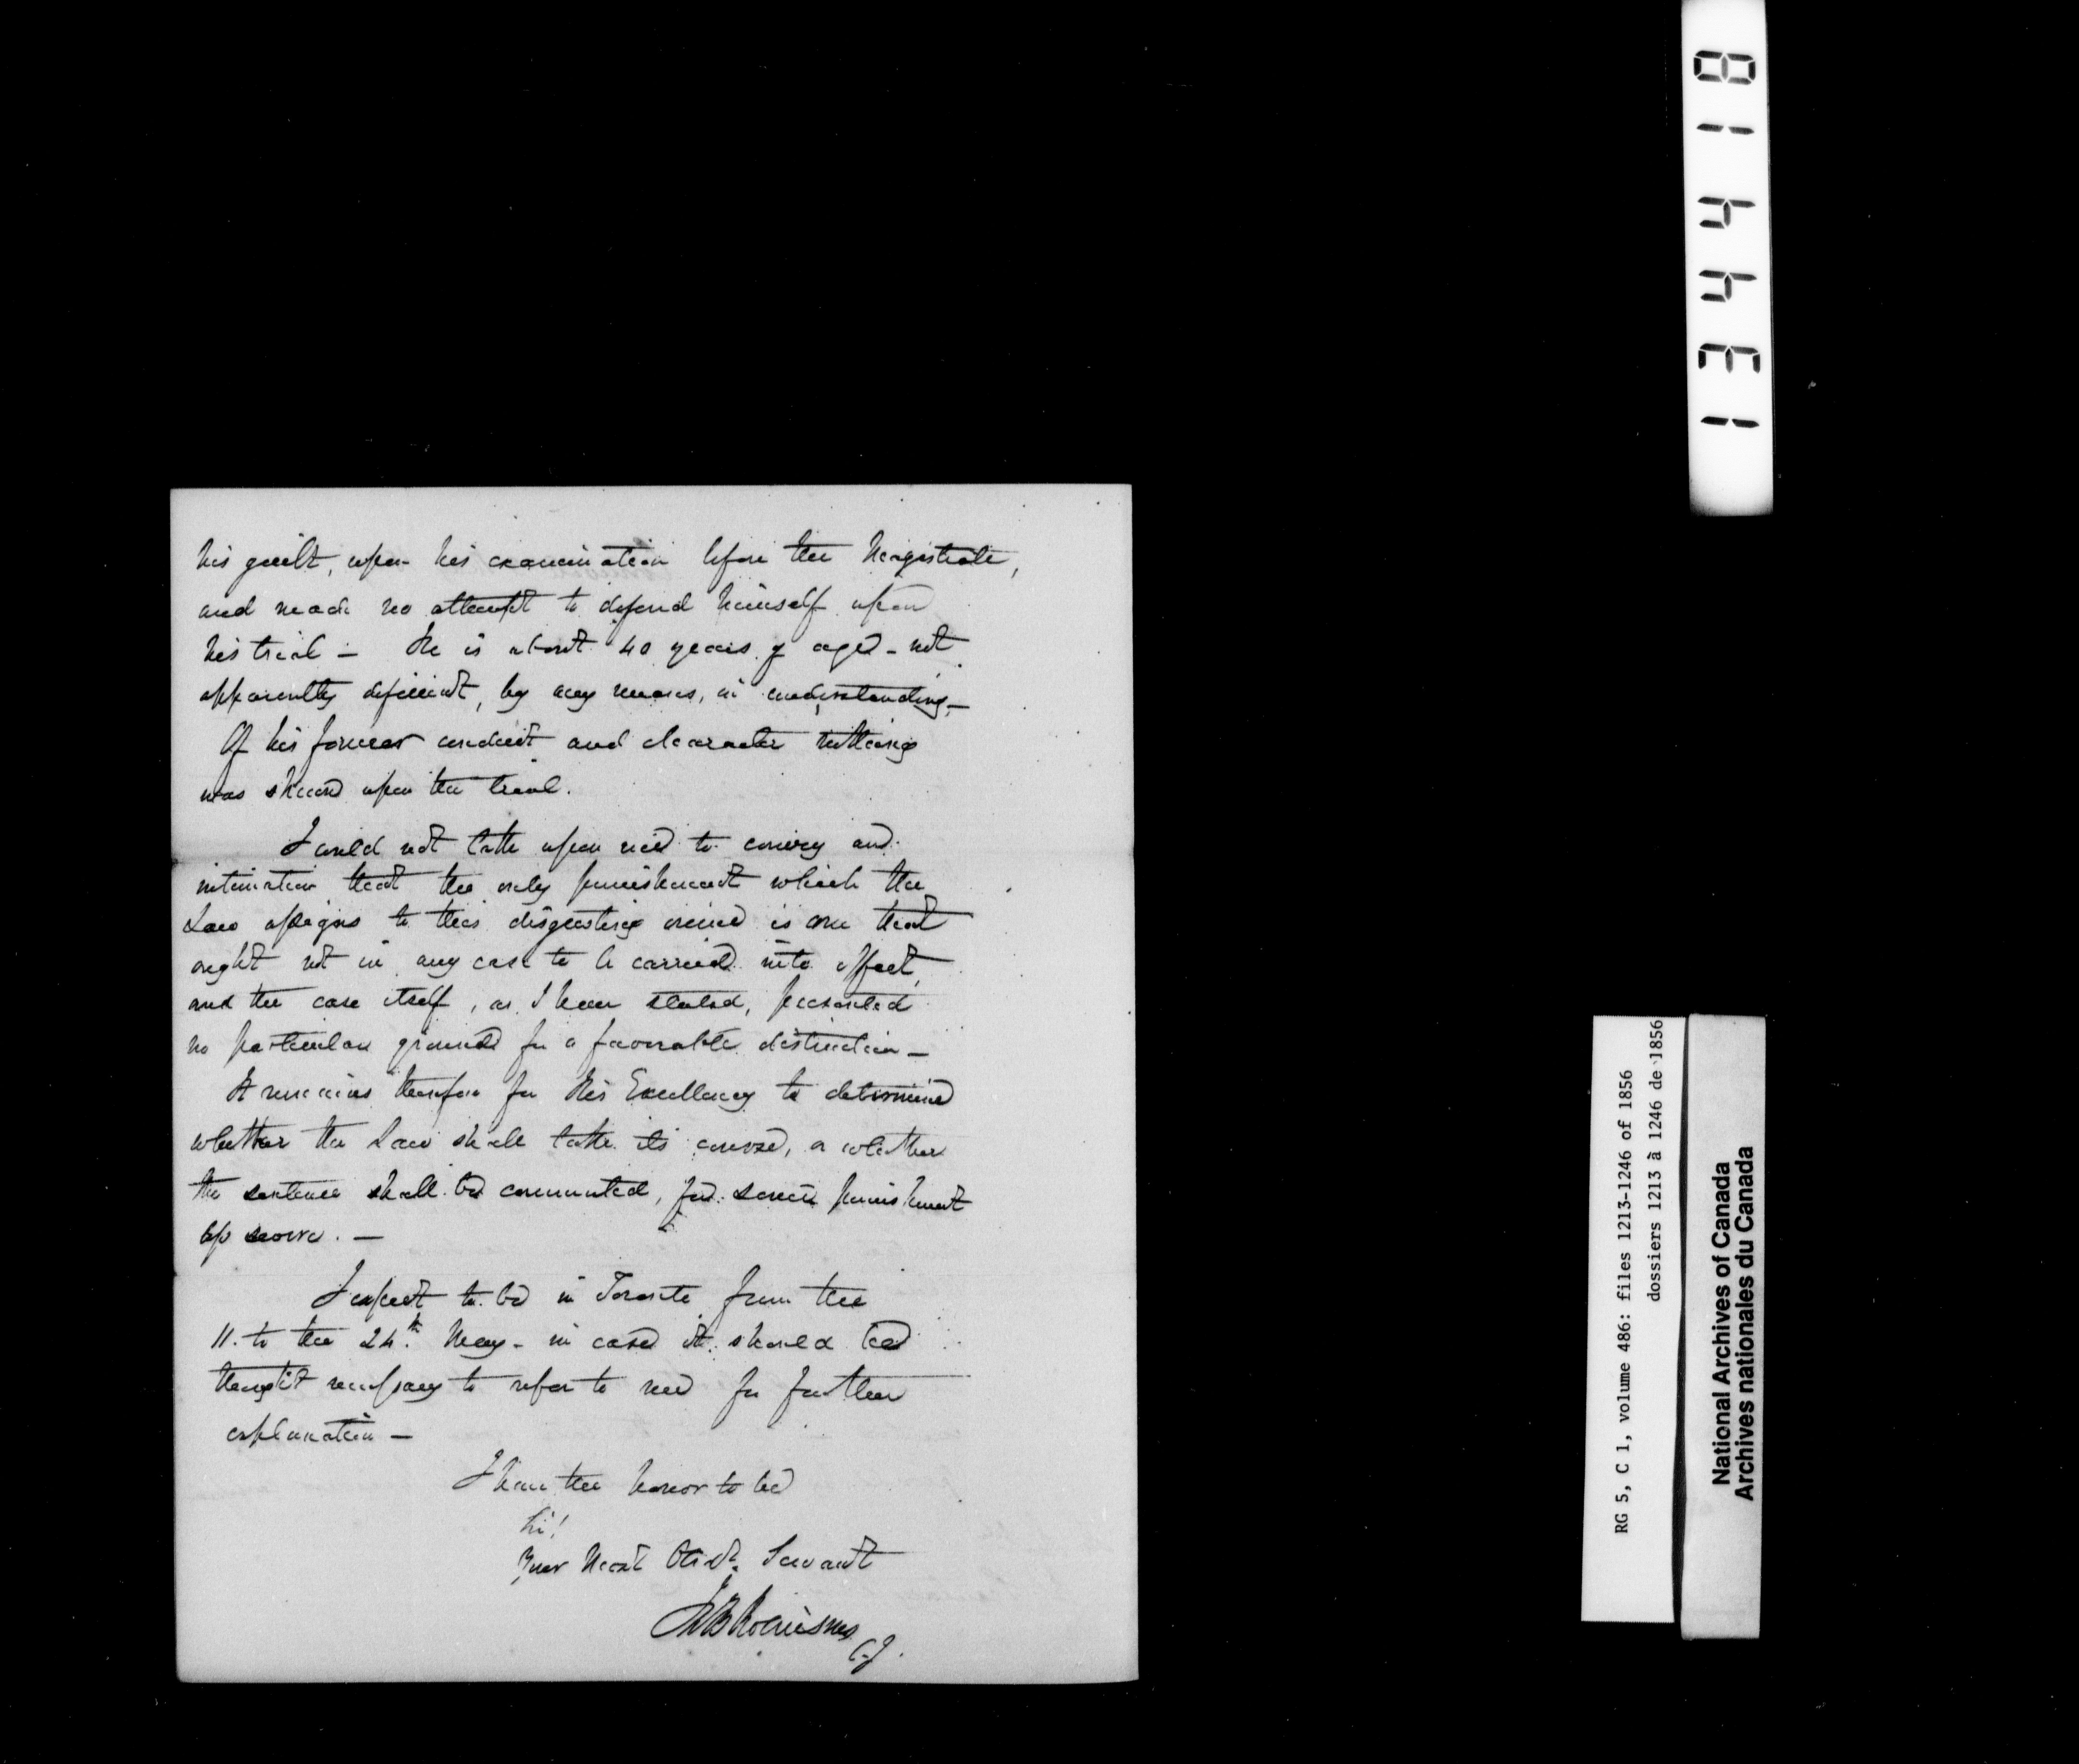 his guilt, upon his examination before the Magistrate,
and made no attempt to defend himself upon
his trial — He is about 40 years of age - not
apparently deficient, by any means, in understanding —
Of his former conduct and character nothing
was shewn upon the trial.
I could not take upon me to convey any
intimation that the only punishment which the
Law assigns to this disgusting crime is one that
ought not in any case to be carried into effect,
and the case itself, as I have stated, presented
no particular grounds for a favorable distinction —
It remains therefore for His Excellency to determine
whether the Law shall take its course, or whether
the sentence shall be commuted, for some punishment
less severe. —
I expect to be in Toronto from the
11. to the 24th. May - in case it should be
thought necessary to refer to me for further
explanation —
I have the honor to be
Sir!
Your Most Obedt. Servant
J B Robinson
C.J.
134418
RG 5, C 1, volume 486: files 1213-1246 of 1856
dossiers 1213 à 1246 de 1856
National Archives of Canada
Archives nationales du Canada